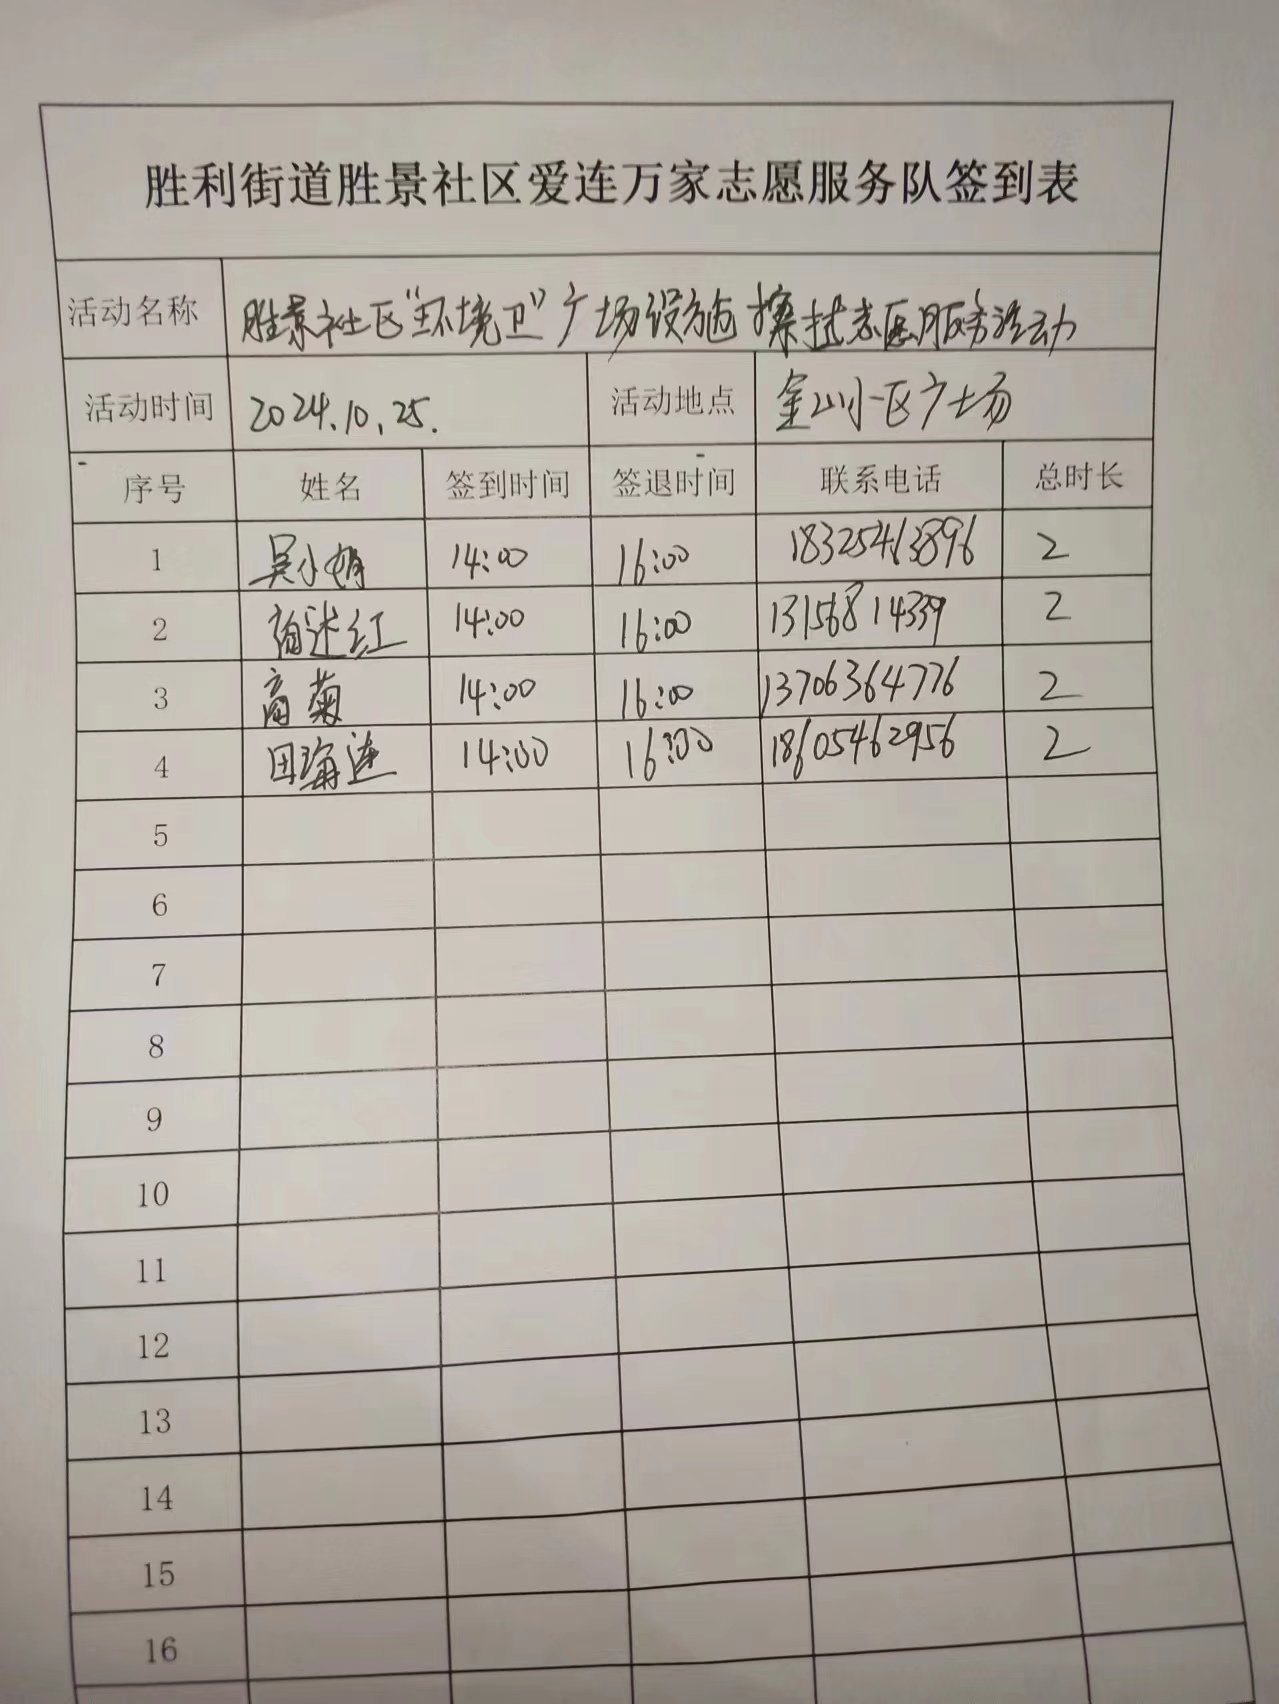 胜利街道胜景社区爱连万家志愿服务队签到表
活动名称 胜景社区“环境卫”广场设施擦拭志愿服务活动
活动时间 2024.10.25. 活动地点 金山小区广场
序号 姓名 签到时间 签退时间 联系电话 总时长
1 吴小娟 14:00 16:00 18325463896 2
2 述红 14:00 16:00 13156814339 2
3 高菊 14:00 16:00 13706364776 2
4 田海莲 14:00 16:00 18605462956 2
5
6
7
8
9
10
11
12
13
14
15
16